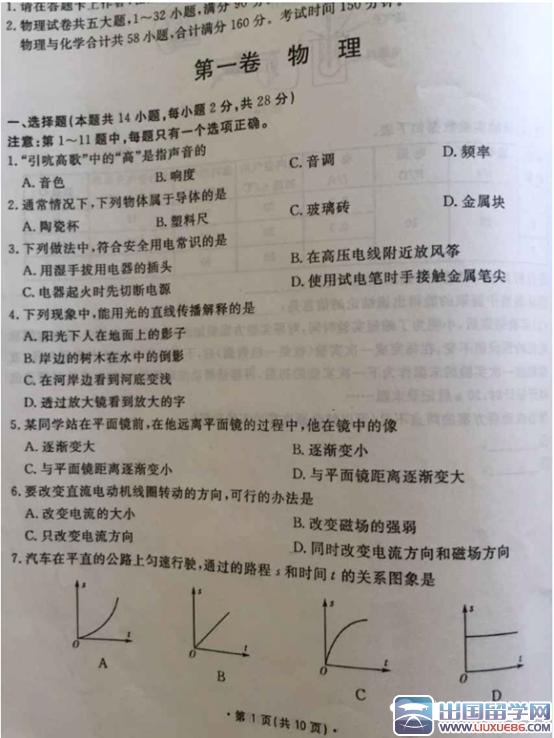 1. 请在答题卡上作答
2. 物理试卷共五大题,1～32小题,满分90分。考试时间150分钟。
物理与化学合计共58小题,合计满分160分。
第一卷 物 理
一、选择题(本题共14小题,每小题2分,共28分)
注意:第1～11题中,每题只有一个选项正确。
1.“引吭高歌”中的“高”是指声音的
A. 音色 B. 响度 C. 音调 D. 频率
2. 通常情况下,下列物体属于导体的是
A. 陶瓷杯 B. 塑料尺 C. 玻璃砖 D. 金属块
3. 下列做法中,符合安全用电常识的是
A. 用湿手拔用电器的插头 B. 在高压电线附近放风筝
C. 电器起火时先切断电源 D. 使用试电笔时手接触金属笔尖
4. 下列现象中,能用光的直线传播解释的是
A. 阳光下人在地面上的影子
B. 岸边的树木在水中的倒影
C. 在河岸边看到河底变浅
D. 透过放大镜看到放大的字
5. 某同学站在平面镜前,在他远离平面镜的过程中,他在镜中的像
A. 逐渐变大 B. 逐渐变小
C. 与平面镜距离逐渐变小 D. 与平面镜距离逐渐变大
6. 要改变直流电动机线圈转动的方向,可行的办法是
A. 改变电流的大小 B. 改变磁场的强弱
C. 只改变电流方向 D. 同时改变电流方向和磁场方向
7. 汽车在平直的公路上匀速行驶,通过的路程 s 和时间 t 的关系图象是
s s s s
O t O t O t O t
A B C D
·第1页(共10页)·
出国留学网
WWW.LIUXUE86.COM